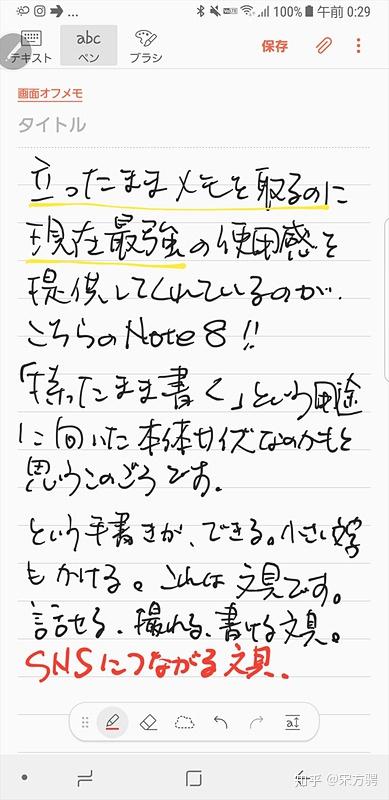 100% 午前 0:29
テキスト
abc
ペン
ブラシ
保存
画面オフメモ
タイトル
立ったままメモを取るのに
現在最強の使用感を
提供してくれているのが、
こちらのNote 8!!
「持ったまま書く」という用途
に向いた本体サイズなのかもと
思うこのごろです。
という手書きが、できる。小さい文字
もかける。これは文具です。
話せる、撮れる、書ける文具。
SNSにつながる文具。
知乎 @宋方骋